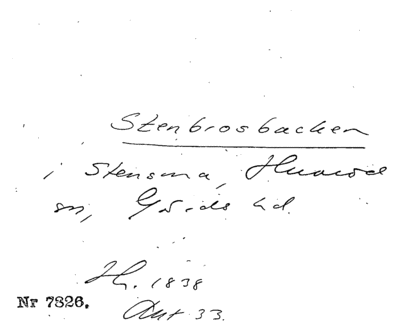 Stenbrosbacken
i Stensma, Hvarod
sn, Gärds hd.
H. 1838
Nr 7826.
Ant 33.